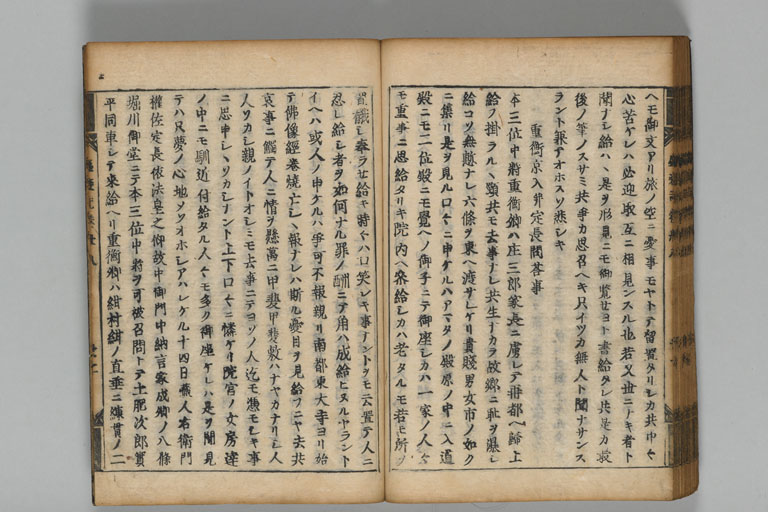 ヘモ御文アリ旅ノ空ニ憂事モヤトテ留置タリシカ共中々
心苦ケレハ必迎取互ニ相見ンスル也若又世ニナキ者ト
聞ナシ給ハヽ是ヲ形見ニモ御覧セヨト書給タレ共是カ最
後ノ筆ノスサミ共争カ思召ヘキ只イツカ無人ト聞ナサンス
ラント兼テオホスソ悲シキ
重衡京入并定長問答事
本三位中将重衡卿ハ庄三郎家長ニ虜レテ都ヘ歸上
給フ掛ラルヽ頸共モ去事ナレ共生ナカラ故郷ニ恥ヲ瀑シ
給コソ無慙ナレ六條ヲ東ヘ渡サレケリ貴賤男女市ノ如ク
ニ集リ是ヲ見ル口々ニ申ケルハアマタノ殿原ノ中ニ入道
殿ニモ二位殿ニモ覺ヘノ御子ニテ御座シカハ一家ノ人々
モ重事ニ思給タリキ院内ヘ參給シカハ老タルモ若モ所ヲ
置シ奉ラセ給キ時々ハ口笑シキ事ナントヲモ云置テ人ニ
忍レ給シ者ヲ如何ナル罪ノ酬ニテ角ハ成給ヒヌルヤラント
イヘハ或人ノ申ケルハ争可不報親リ南都東大寺ヨリ始
テ佛像經巻燒亡シヽ報ナレハ斯ル憂目ヲ見給フニヤ去共
哀事ニ觸テ人ニ情ヲ懸萬ニ甲斐甲斐敷ハナヤカナリシ人
人ツカシ親ノイトオシミモ去事ニテヨソノ人迄モ憑モシキ事
ニ思申シヽソカシナント上下口々ニ憐ケリ院宮ノ女房達
ノ中ニモ馴近付給タル人々モ多ク御座ケレハ是ヲ聞見
テハ只夢ノ心地ノソオホシアハレケル十四日藏人右衛門
權佐定長依法皇之仰故中御門中納言家成卿ノ八條
堀川御堂ニテ本三位中將ヲ可被召問トテ土肥次郎實
平同車シテ來給ヘリ重衡卿ハ紺村紺ノ直垂ニ練貫ノ二